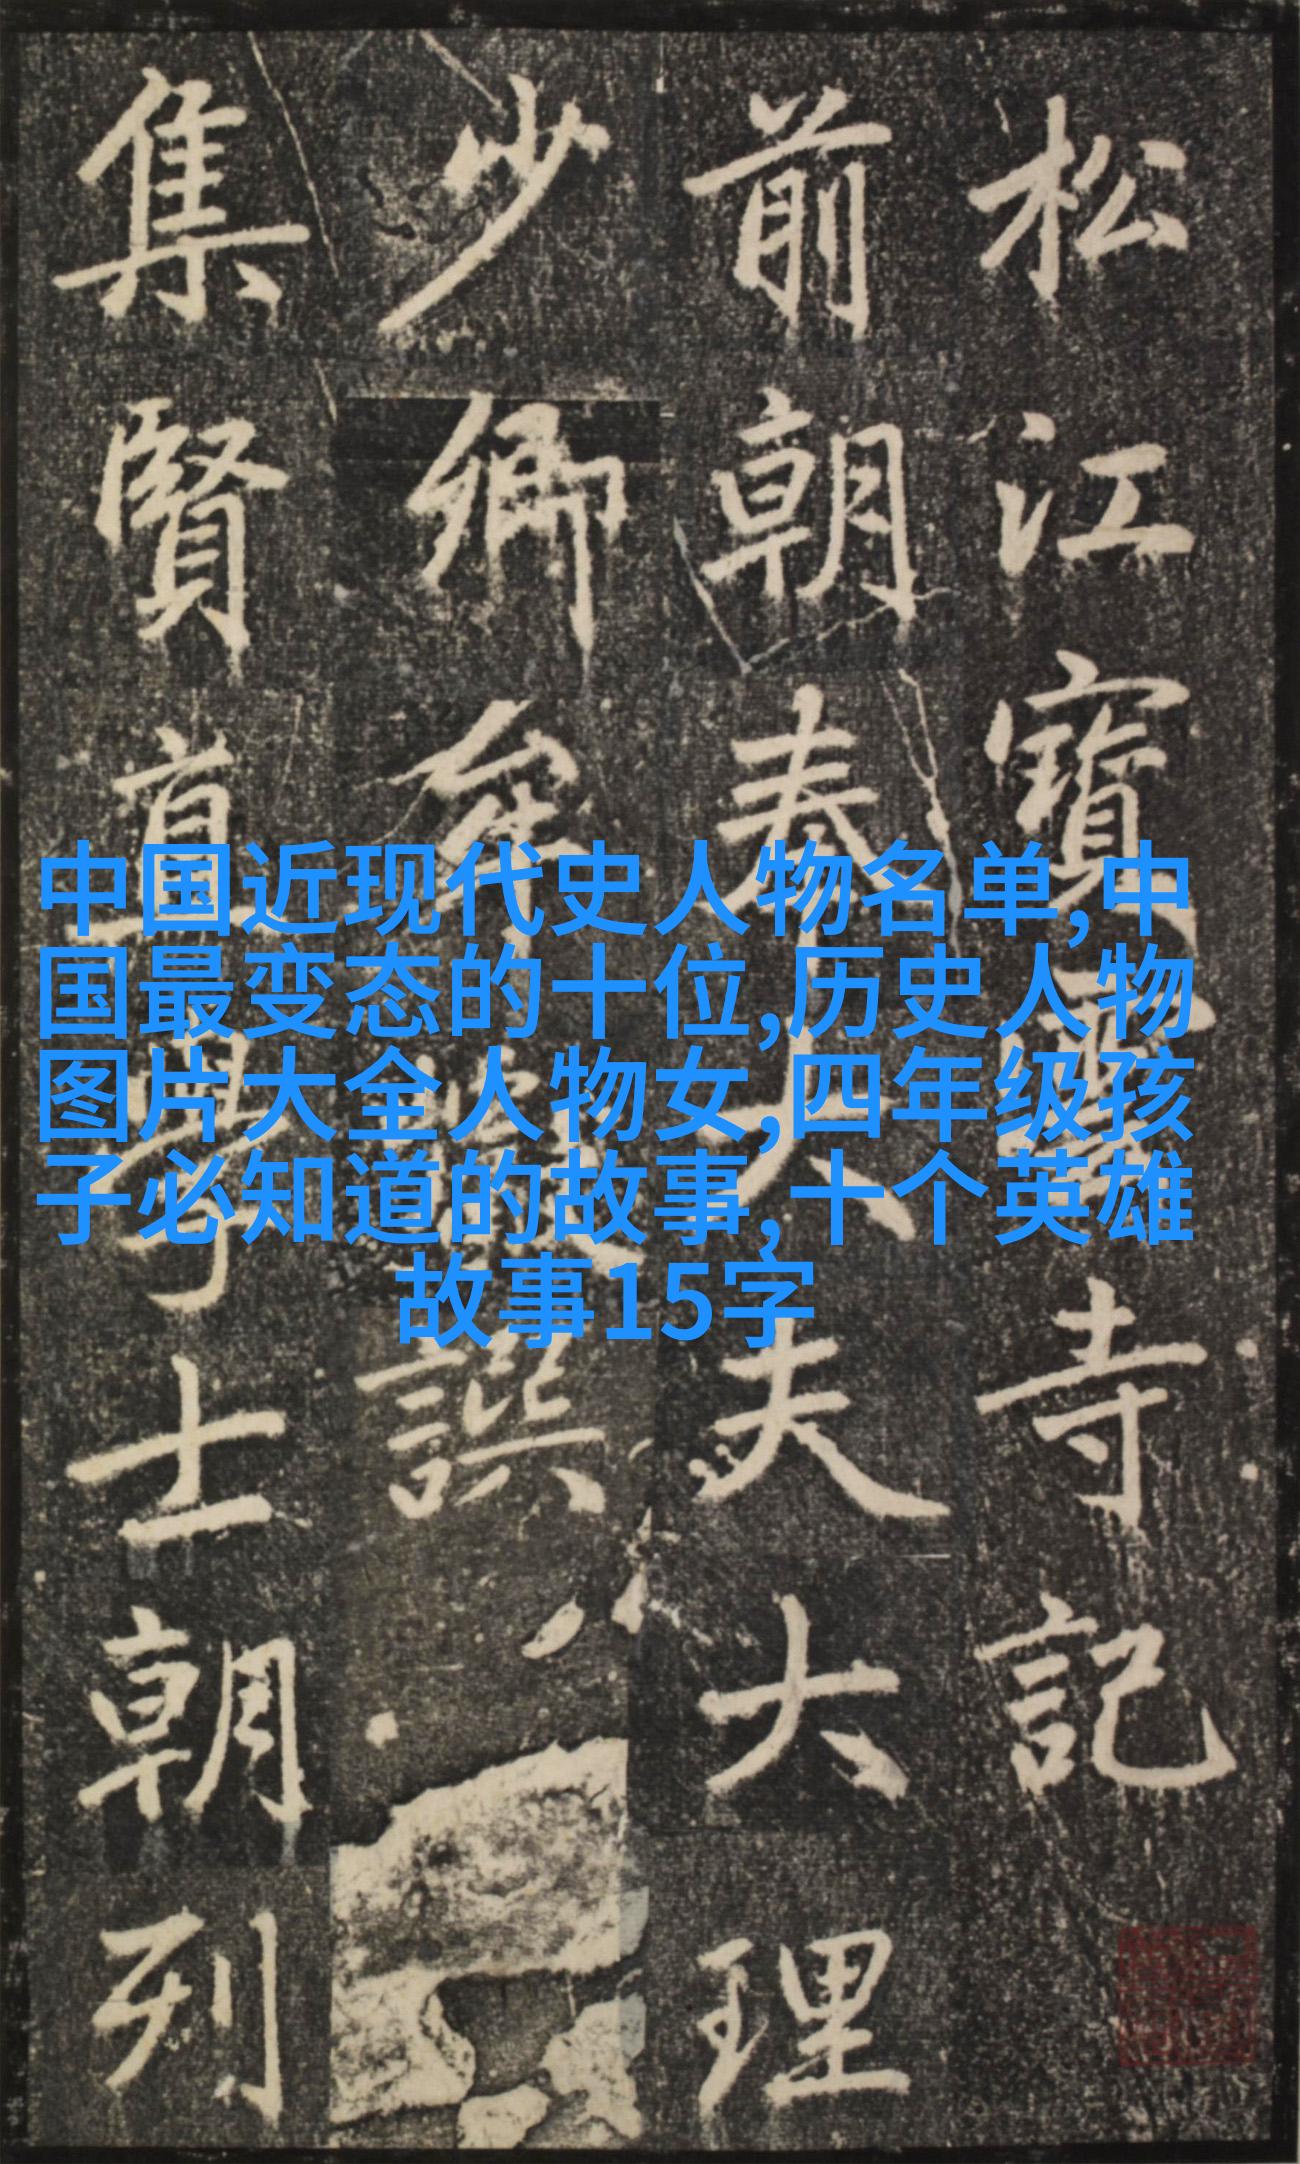 中国近现代史人物名单,中
国最变态的十位,历史人物
图片大全人物女,四年级孩
子必知道的故事,十个英雄
故事15字
松江寶雲寺記
前朝奉大夫大理
少卿牟譔
集賢直學士朝列